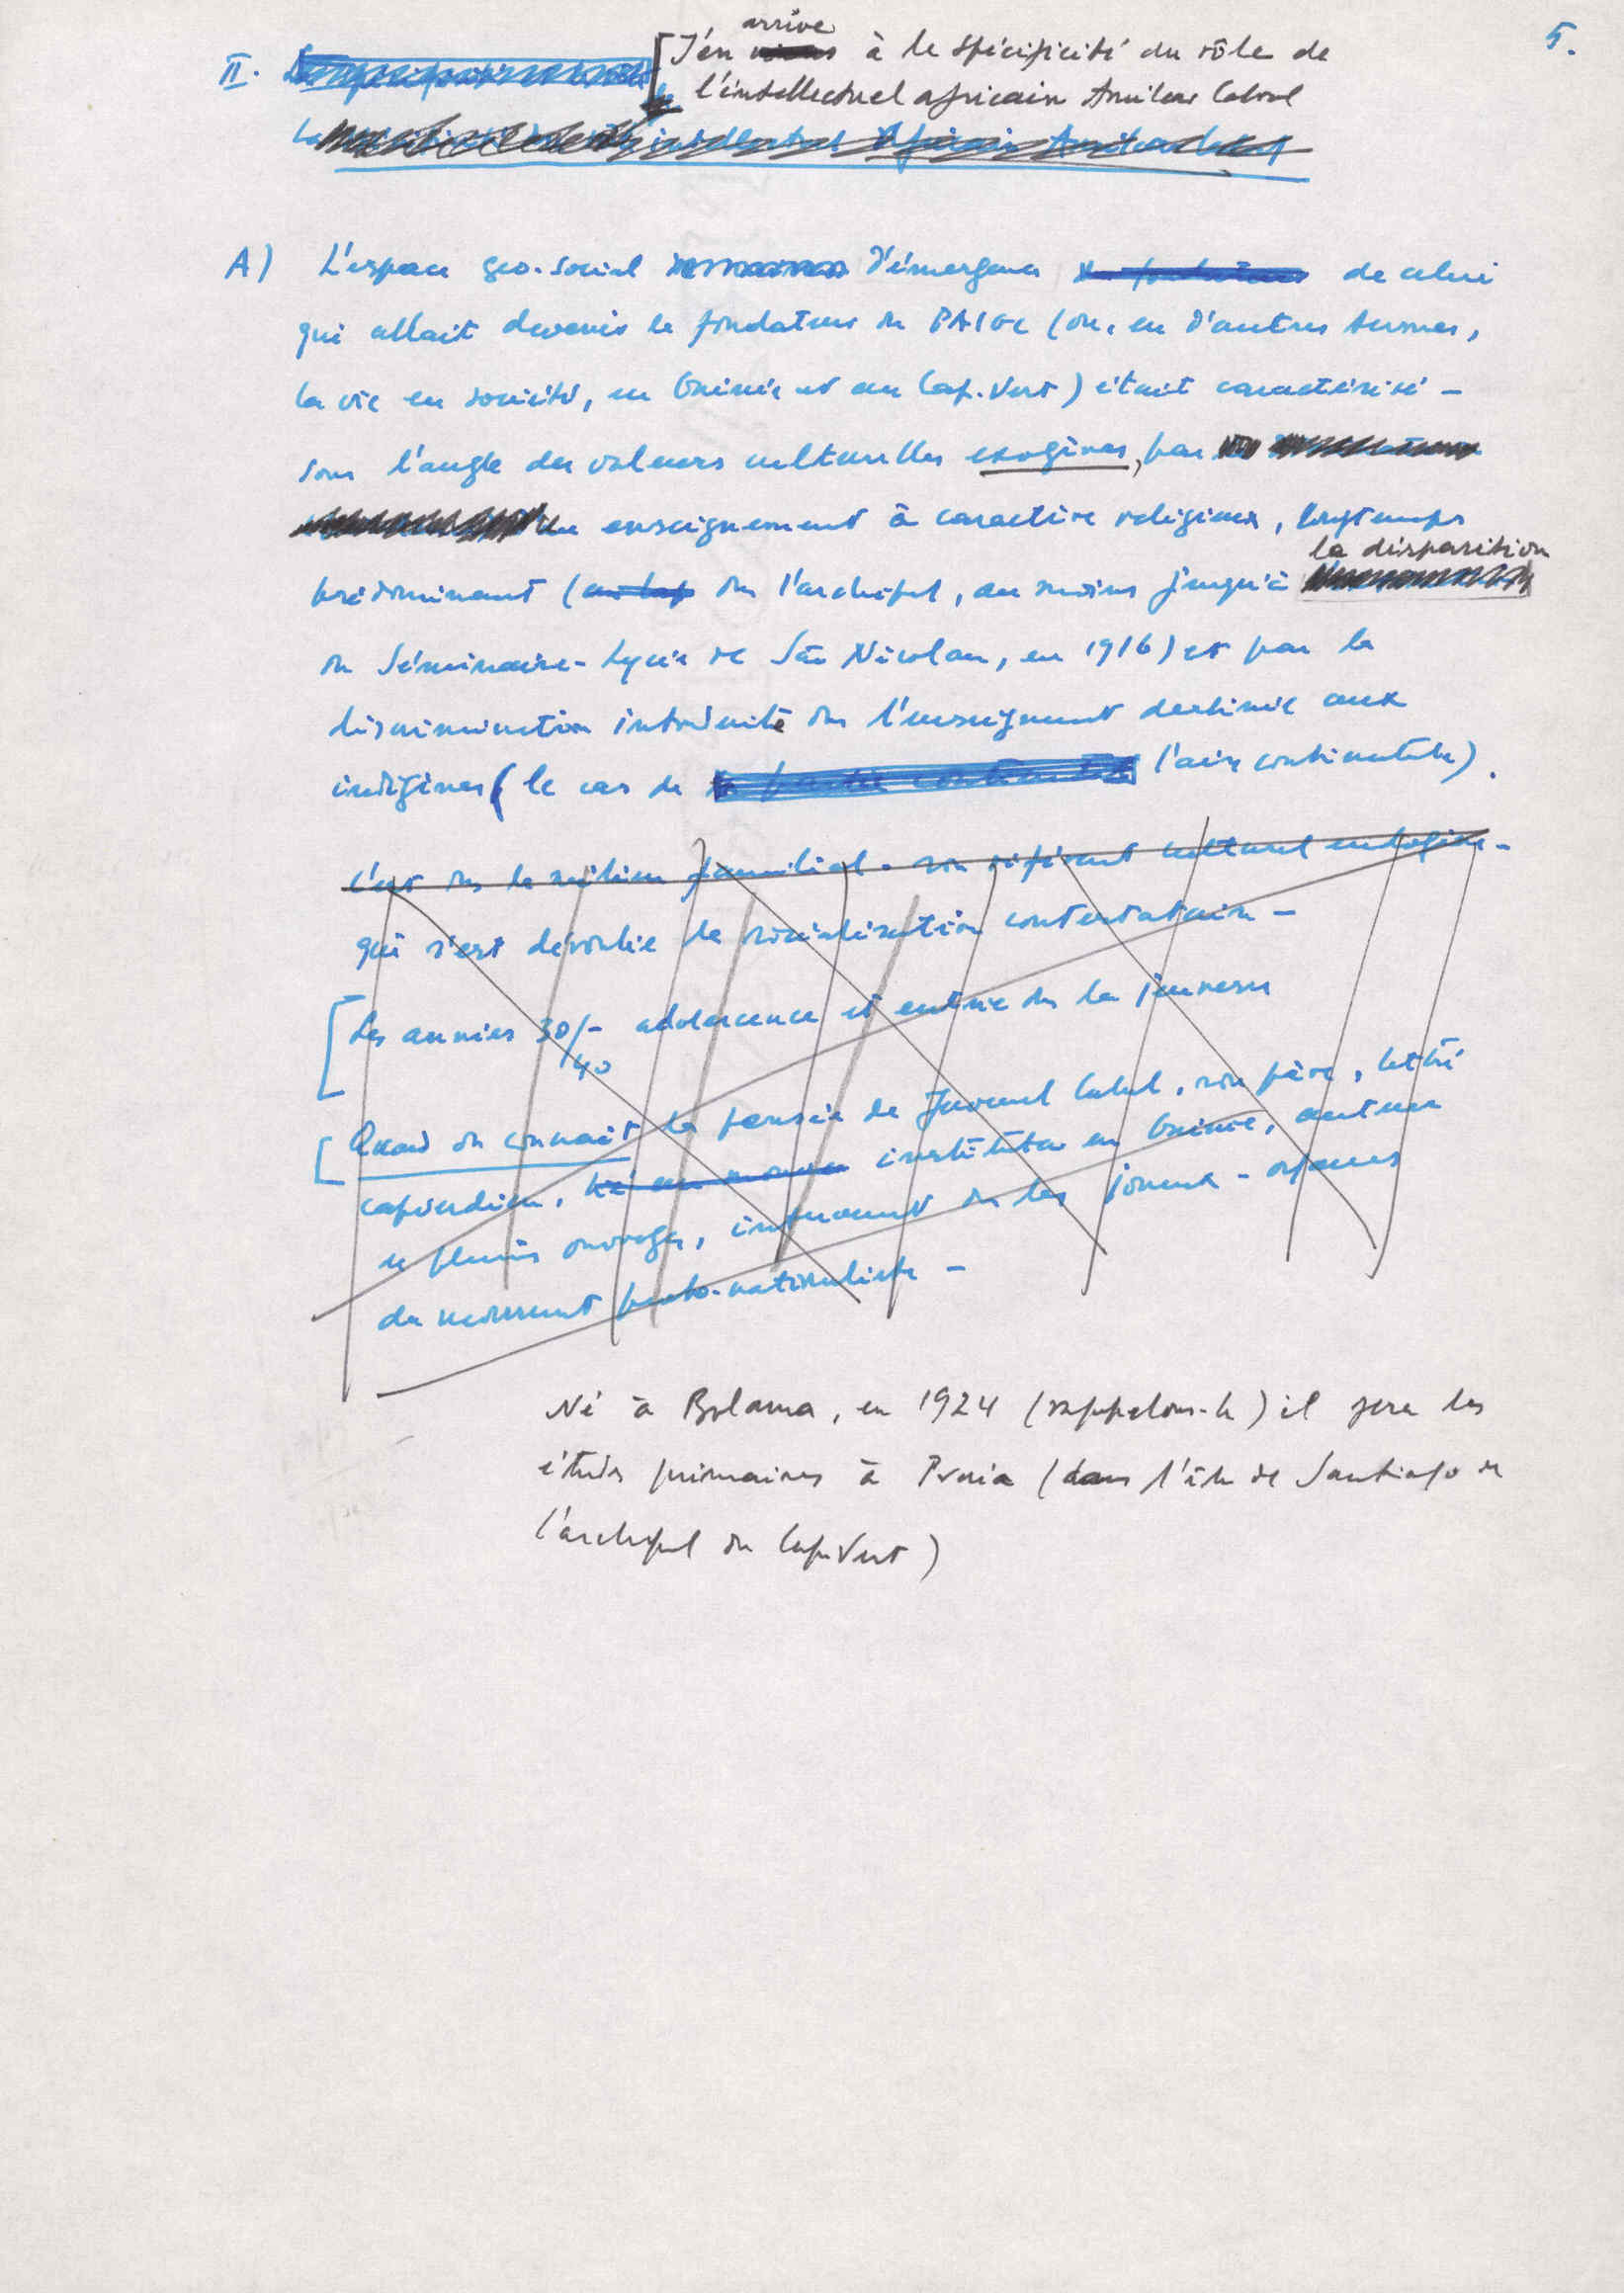 5.
arrive
II. [J'en à le spécificité du rôle de
l'intellectuel africain Amilcar Cabral
A) L'espace geo-social d'émergence de celui
qui allait devenir le fondateur du PAIGC (ou, en d'autres termes,
la vie en société, en Guinée et au Cap-Vert) était caractérisé -
sous l'angle des valeurs culturelles exogènes, par
un enseignement à caractère religieux, longtemps
la disparition
prédominant (ds l'archipel, au moins jusqu'à
du Séminaire-Lycée de São Nicolau, en 1916) et par la
discrimination introduite ds l'enseignement destinée aux
indigènes (le cas de l'aire continentale).
c'est ds le milieu familial - son référent culturel endogène -
qui s'est déroulée la socialisation contestataire -
[Les années 30/- adolescence et entrée ds la jeunesse
40
[Quand on connait la pensée de Juvenal Cabral, son père, lettré
capverdien, instituteur en Guinée, auteur
de plusieurs ouvrages, intervenant ds les journaux - organes
du mouvement proto-nationaliste -
Né à Bolama, en 1924 (rappelons-le) il fera les
études primaires à Praia (dans l'île de Santiago de
l'archipel du Cap-Vert)